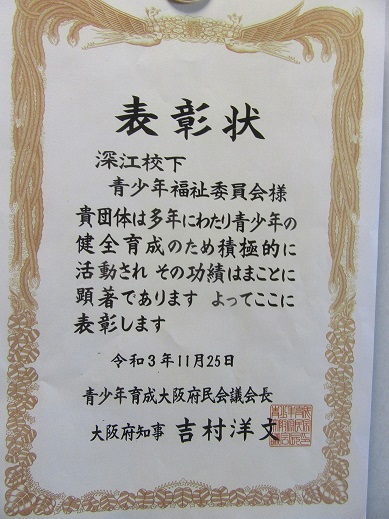 表彰状
深江校下
青少年福祉委員会様
貴団体は多年にわたり青少年の
健全育成のため積極的に
活動され その功績はまことに
顕著であります よってここに
表彰します
令和3年11月25日
青少年育成大阪府民会議会長
大阪府知事 吉村洋文